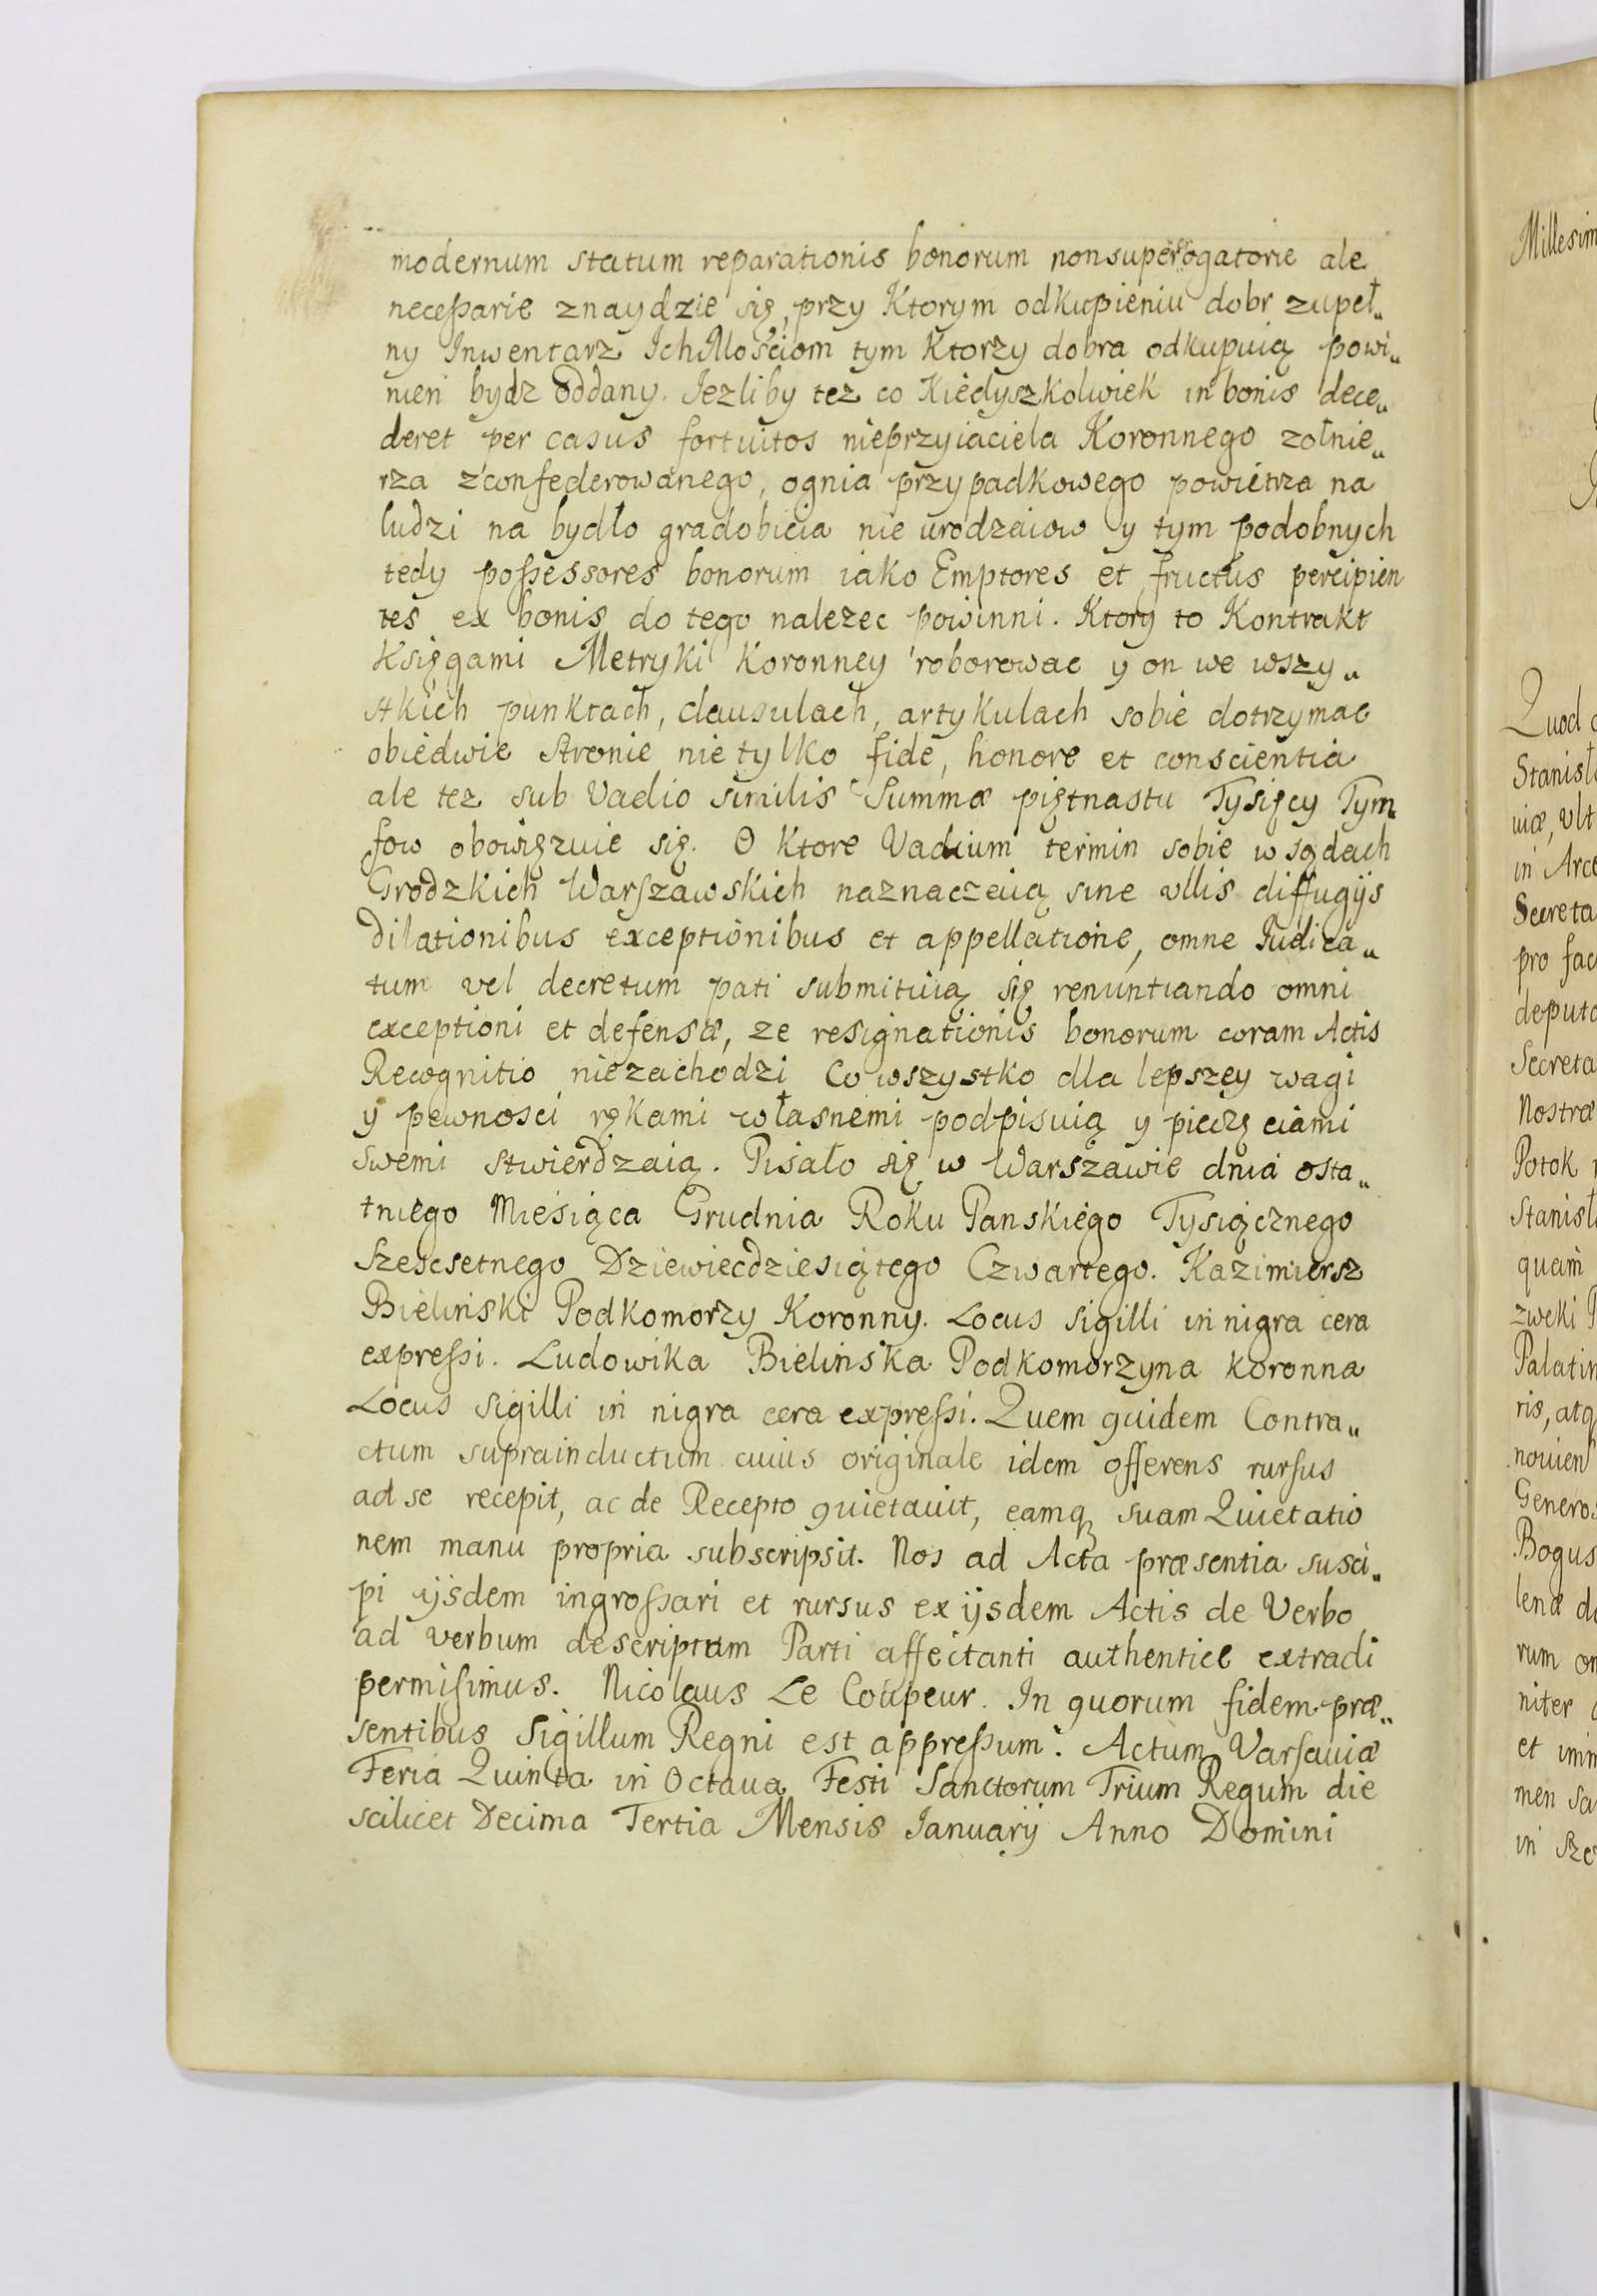 modernum statum reparationis bonorum nonsupererogatorie ale
necessarie znaydzie się, przy Ktorym odkupieniu dobr zupeł„
ny Inwentarz IchMościom tym Ktorzy dobra odkupuią powi„
nien bydz oddany. Iezliby tez co Kiedyszkolwiek in bonis dece„
deret per casus fortuitos nieprzyiaciela Koronnego zołnie„
rza zconfederowanego, ognia przypadkowego powietrza na
ludzi na bydło gradobicia nie urodzaiow y tym podobnych
tedy possessores bonorum iako Emptores et fructus percipien
tes ex bonis do tego nalezec powinni. Ktory to Kontrakt
Księgami Metryki Koronney roborowac y on we wszy„
stkich punktach, clausulach, artykulach sobie dotrzymac
obiedwie stronie nie tylko fide, honore et conscientia
ale tez sub Vadio similis Summæ piętnastu Tysięcy Tym„
fow obowięzuie się. O Ktore Vadium termin sobie w sądach
Grodzkich Warszawskich naznaczaią sine ullis diffugijs
Dilationibus exceptionibus et appellatione, omne Iudica„
tum vel decretum pati submituią się renuntiando omni
exceptioni et defensæ, ze resignationis bonorum coram Actis
Recognitio niezachodzi Co wszystko dla lepszey wagi
y pewnosci rękami własnemi podpisuią y pieczęciami
swemi stwierdzaią. Pisało się w Warszawie dnia osta„
tniego Miesiąca Grudnia Roku Panskiego Tysiącznego
Szescsetnego Dziewiecdziesiątego Czwartego. Kazimiersz
Bielinski Podkomorzy Koronny. Locus Sigilli in nigra cera
expressi. Ludowika Bielinska Podkomorzyna koronna
Locus Sigilli in nigra cera expressi. Quem quidem Contra„
ctum suprainductum cuius originale idem offerens rursus
ad se recepit, ac de Recepto quietauit, eamq suam Quietatio
nem manu propria subscripsit. Nos ad Acta præsentia susci„
pi ijsdem ingrossari et rursus ex ijsdem Actis de Verbo
ad verbum descriptum Parti affectanti authentice extradi
permisimus. Nicolaus Le Coupeur. In quorum fidem præ„
sentibus Sigillum Regni est appressum. Actum Varsauiæ
Feria Quinta in Octaua Festi Sanctorum Trium Regum die
scilicet Decima Tertia Mensis Ianuarij Anno Domini
Millesim
Quod
Stanisł
uiæ, Vlt
in Arc
Secreta
pro fac
deputa
Secreta
Nostræ
Potok
Stanisł
quam
zweki
Palatin
ris, atq
nouien
Genero
Bogus
lenæ
rum
niter
et
men
in